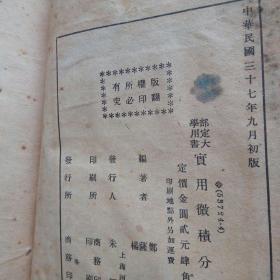 中華民國三十七年九月初版
◎(53724·4)
部定大學用書
實用微積分
定價金圓貳元肆角
印刷地點外另加運費
編著者
鄭
薩
楊
發行人
朱
上海河
印刷所
商務印
發行所
商務印
版權所有
翻印必究